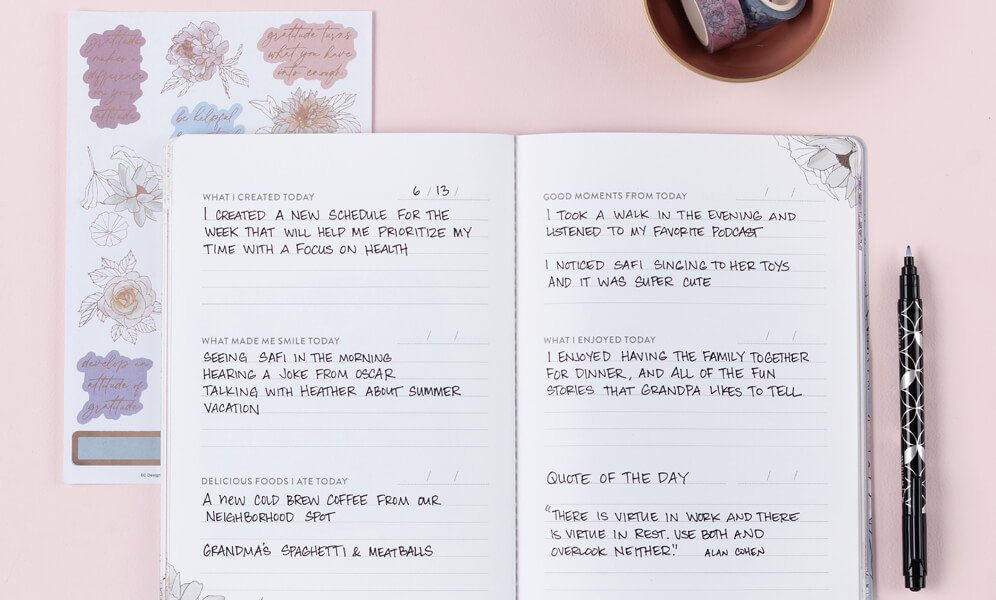 gratitude
makes a
difference
in your
attitude
gratitude turns
what you have
into enough
be helpful
develop an
attitude of
gratitude
EC Design
WHAT I CREATED TODAY
6 / 13 /
I CREATED A NEW SCHEDULE FOR THE
WEEK THAT WILL HELP ME PRIORITIZE MY
TIME WITH A FOCUS ON HEALTH
WHAT MADE ME SMILE TODAY
/ /
SEEING SAFI IN THE MORNING
HEARING A JOKE FROM OSCAR
TALKING WITH HEATHER ABOUT SUMMER
VACATION
DELICIOUS FOODS I ATE TODAY
/ /
A NEW COLD BREW COFFEE FROM OUR
NEIGHBORHOOD SPOT
GRANDMA'S SPAGHETTI & MEATBALLS
GOOD MOMENTS FROM TODAY
/ /
I TOOK A WALK IN THE EVENING AND
LISTENED TO MY FAVORITE PODCAST
I NOTICED SAFI SINGING TO HER TOYS
AND IT WAS SUPER CUTE
WHAT I ENJOYED TODAY
/ /
I ENJOYED HAVING THE FAMILY TOGETHER
FOR DINNER, AND ALL OF THE FUN
STORIES THAT GRANDPA LIKES TO TELL
QUOTE OF THE DAY
/ /
"THERE IS VIRTUE IN WORK AND THERE
IS VIRTUE IN REST. USE BOTH AND
OVERLOOK NEITHER." ALAN COHEN